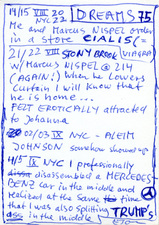 14/15 VIII 20 NYC 22 DREAMS 75
Me and Marcus NISPEL order
in a store CIALIS (=
21/22 VIII STONY BROOK VIAGRA
W/ MARCUS NISPEL @ 214
(AGAIN!) When he lowers
Curtain I will know that
he is home...
FELT EROTICALLY attracted
to Johanna
02/03 IX NYC - ALEIM
JOHNSON somehow showed up
4/5 IX NYC I professionally
disassembled a MERCEDES-
BENZ car in the middle and
realized at the same time
that I was also splitting TRUMP's
ass in the middle